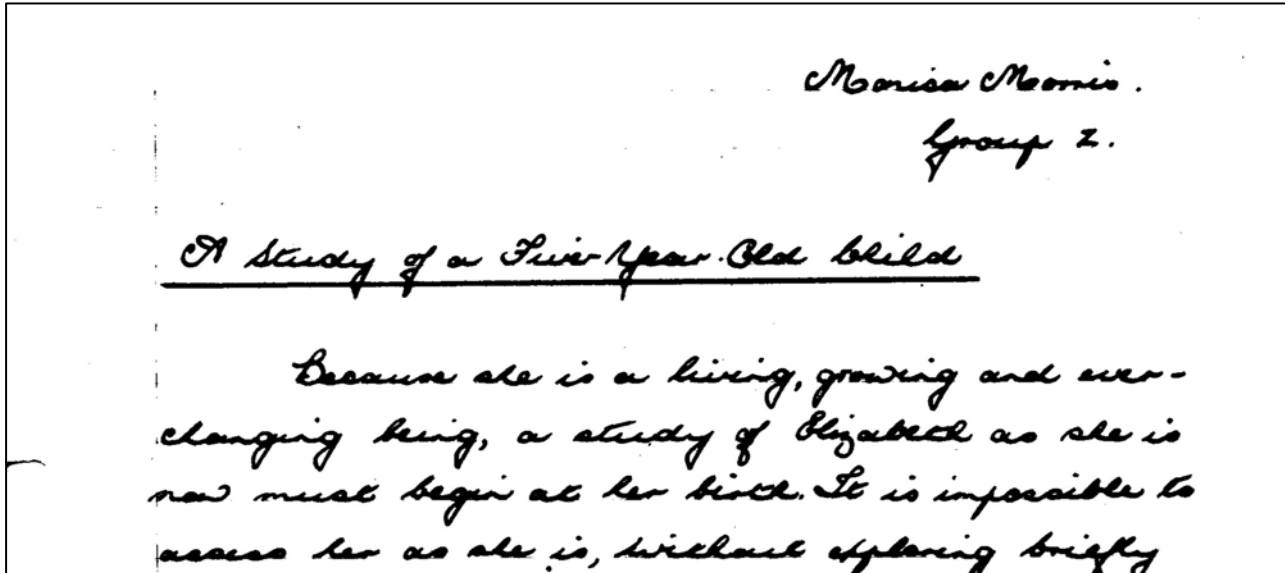 Marisa Morris.
Group 2.
A Study of a Five-Year-Old Child
Because she is a living, growing and ever-
changing being, a study of Elizabeth as she is
now must begin at her birth. It is impossible to
assess her as she is, without exploring briefly